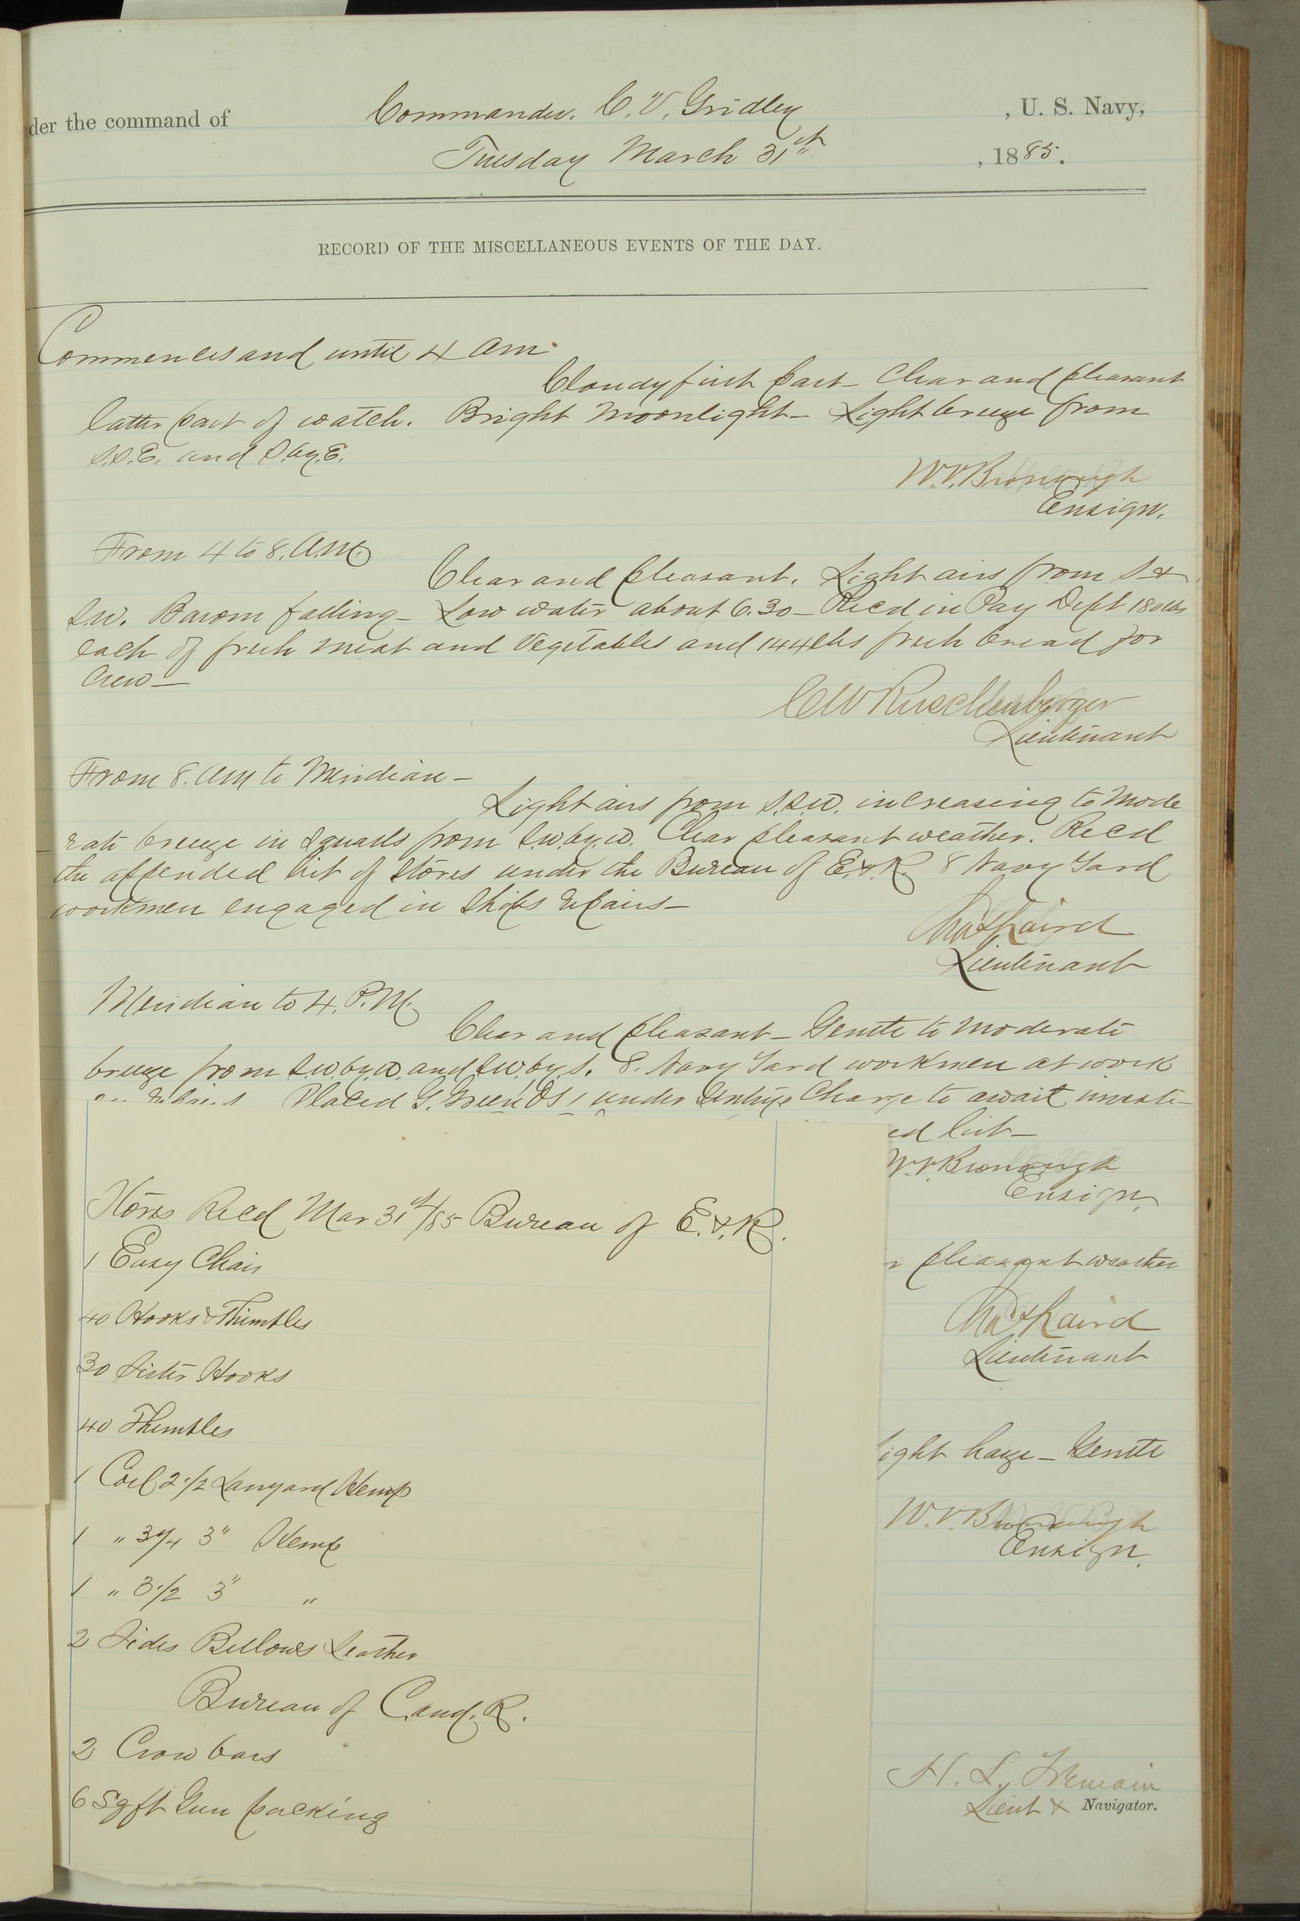 der the command of Commander. C. V. Gridley, U. S. Navy,
Tuesday March 31st, 1885.
RECORD OF THE MISCELLANEOUS EVENTS OF THE DAY.
Commences and until 4 am.
Cloudy first part - Clear and pleasant
latter part of watch. Bright Moonlight - Light breeze from
S.S.E. and S.by.E.
W.V. Bronaugh
Ensign.
From 4 to 8. A.M.
Clear and pleasant. Light airs from S. &
S.W. Barom falling - Low water about 6.30 - Rec'd in Pay Dept 180 lbs
each of fresh meat and Vegetables and 144 lbs fresh bread for
Crew -
C W Ruschenberger
Lieutenant
From 8. am to Meridian -
Light airs from S.S.W. increasing to Mode
rate breeze in squalls from S.W.by.W. Clear pleasant weather. Rec'd
the appended list of stores under the Bureau of E. & R. 8 Navy Yard
workmen engaged in Ships repairs -
Laird
Lieutenant
Meridian to 4. P.M.
Clear and pleasant - Gentle to Moderate
breeze from S.W.by.W. and S.W.by.S. 8. Navy Yard workmen at work
Placed G. under Sentry's Charge to await investi-
ed list -
W.V. Bronaugh
Ensign.
r pleasant weather
Laird
Lieutenant
light haze - Gentle
W.V. Bronaugh
Ensign.
H. L. Tremain
Lieut & Navigator.
Stores Recd Mar 31st/85 Bureau of E. & R.
1 Easy Chair
40 Hooks & Thimbles
30 Sister Hooks
40 Thimbles
1 Coil 2 1/2 Lanyard Hemp
1 " 3 3/4 3" Hemp
1 " 3 1/2 3" "
2 Sides Bellows Leather
Bureau of C. and. R.
2 Crow bars
6 Sq ft Gum packing